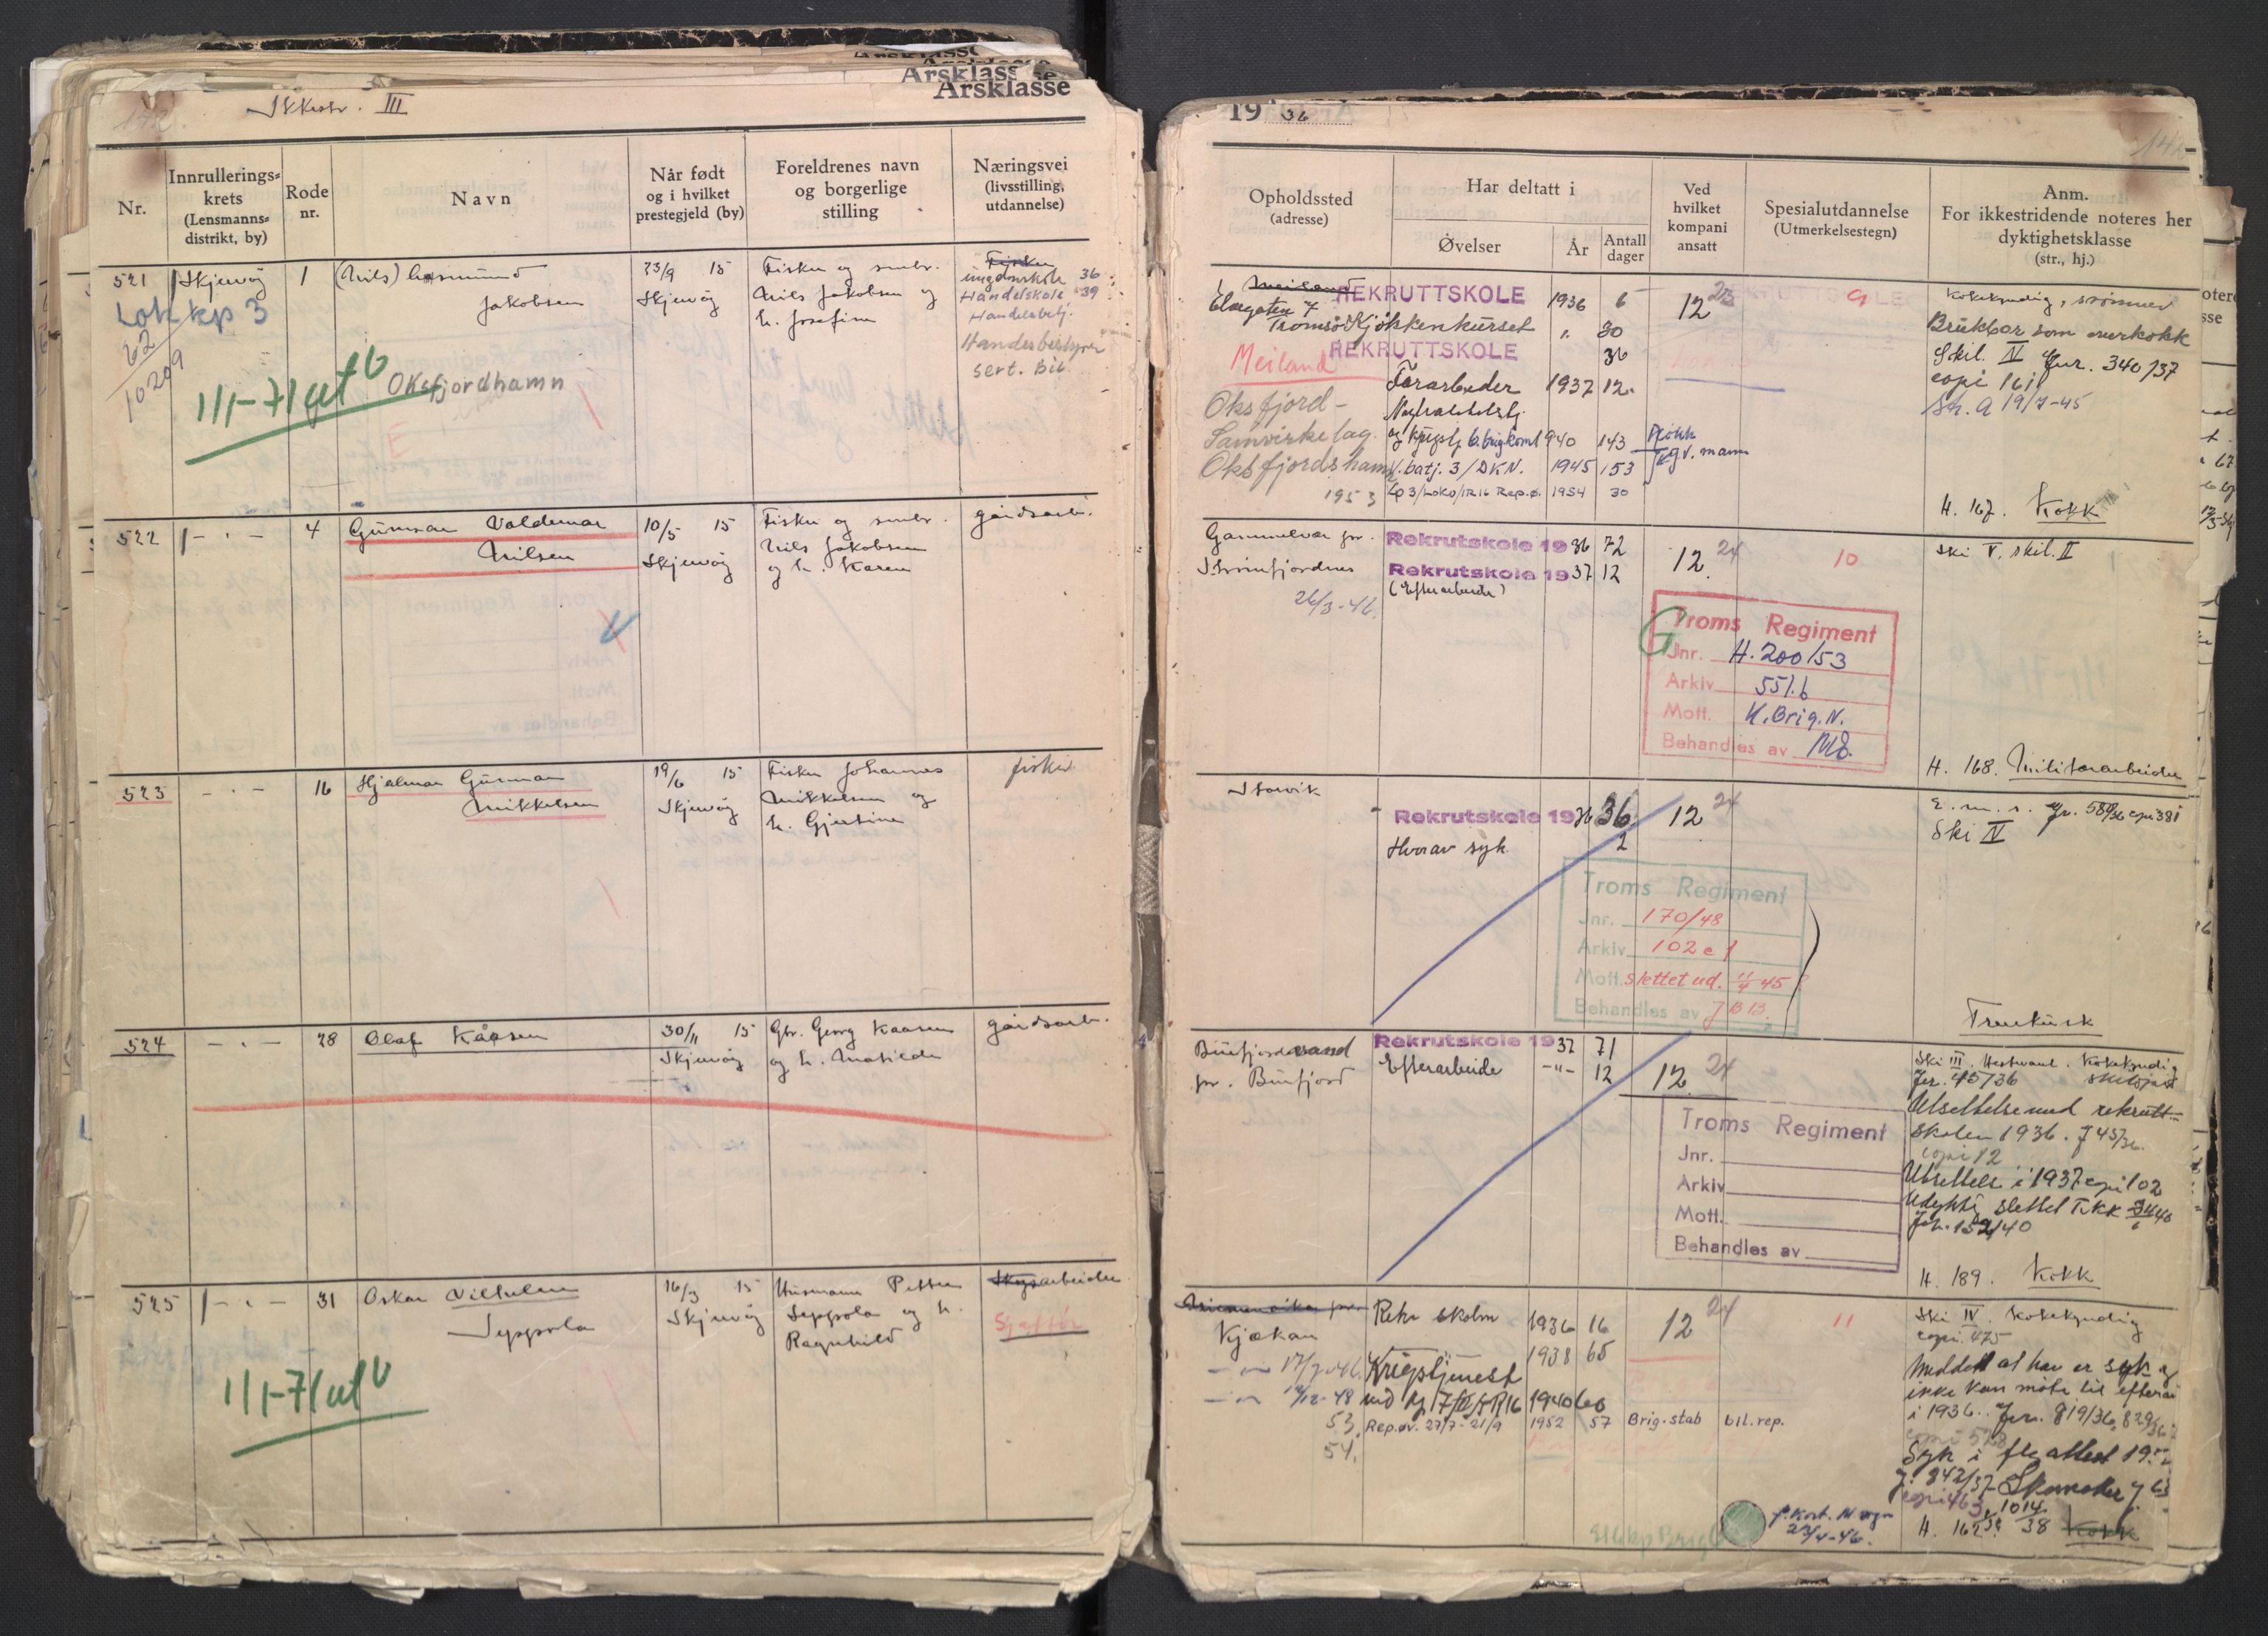 Årsklasse
Ikkestr. III
142
Nr.
Innrullerings-
krets
(Lensmanns-
distrikt, by)
Rode
nr.
Navn
Når født
og i hvilket
prestegjeld (by)
Foreldrenes navn
og borgerlige
stilling
Næringsvei
(livsstilling,
utdannelse)
521 Skjervøy 1 (Nils)
Jakobsen
23/9 15
Skjervøy
Fisker og smbr.
Nils Jakobsen og
h. Josefine
Fisker
ungdomskole 36
Handelskole 39
Handelsbetj.
Handelsbestyrer
sert. Bil.
Lok kp 3
62
10209
1/1-71 utb
Oksfjordhamn
E
522 - " - 4 Gunnar Valdemar
Nilsen
10/5 15
Skjervøy
Fisker og smbr.
Nils Jakobsen
og h. Karen
gårdsarb.
523 - " - 16 Hjalmar Gunnar
Mikkelsen
19/6 15
Skjervøy
Fisker Johannes
Mikkelsen og
h. Gjertine
fisker
524 - " - 28 Olaf Kåasen
30/11 15
Skjervøy
Gbr. Georg Kaasen
og h. Matilde
gårdsarb.
525 - " - 31 Oskar Vilhelm
Seppola
16/3 15
Skjervøy
Husmann Petter
Seppola og h.
Ragnhild
Skogsarbeider
Sjaffør
1/1-71 utb
19 36
142
Opholdssted
(adresse)
Har deltatt i
Øvelser
År
Antall
dager
Ved
hvilket
kompani
ansatt
Spesialutdannelse
(Utmerkelsestegn)
Anm.
For ikkestridende noteres her
dyktighetsklasse
(str., hj.)
Meiland
Elvegaten 7
Tromsø
Meiland
Oksfjord-
Samvirkelag.
Oksfjordshamn
1953
REKRUTTSKOLE 1936 6
Kjøkkenkurset " 30
REKRUTTSKOLE 36
Forarbeder 1937 12.
og krigstj. 6. brig. komt 1940 143
V. batj. 3/DKN. 1945 153
Kp 3/Loko/IR16 Rep.ø. 1954 30
12 23
Kokk
9
Kokekyndig, svømmer
Brukbar som overkokk
Skil. IV Jnr. 340/37
copi 161
Str. A 19/7-45
H. 167. Kokk
Gammelvær pr.
Straumfjordnes
26/3-46.
Rekrutskole 1936 72
Rekrutskole 1937 12
(Efterarbeide)
12. 24
10
Ski V. skil. II
Troms Regiment
Jnr. H. 200/53
Arkiv 551.6
Mott. K. Brig. N.
Behandles av MB.
H. 168. Militærarbeider
Storvik
Rekrutskole 1936 36.
Hvorav syk 2
12 24
E. m. s. Jr. 580/36 copi 381
Ski IV
Troms Regiment
Jnr. 170/48
Arkiv 102 e 1
Mott. slettet ud. 11/4 45
Behandles av JBB.
Trenkusk
Burfjordvand
pr. Burfjord
Rekrutskole 1937 71
Efterarbeide -"- 12
12. 24
Ski III. Hestvant. Kokekyndig
Jnr. 45/36
Utsettelse med rekrutt-
skolen 1936. J 45/36.
copi 12
Utsettelse i 1937 copi 102
Udyktig slettet
Jnr. 152/40
Troms Regiment
Jnr.
Arkiv
Mott.
Behandles av
H. 189. Kokk
Kjækan
- " - 17/7-46.
- " - 12-48
53.
54.
Rekr skolen 1936 16
1938 65
Krigstjenest
med Kp 7/II/IR16 1940 60
Rep.øv. 27/7-21/9 1952 57 Brig.stab bil.rep.
12 24
11
Ski IV. Kokekyndig
copi. 475
Meddelt at han er syk og
ikke kan møte til efterar
i 1936. Jnr. 819/36, 829/36
Syk i flg attest
J. 842/37
copi 463 1014
H. 162. 38 Kokk